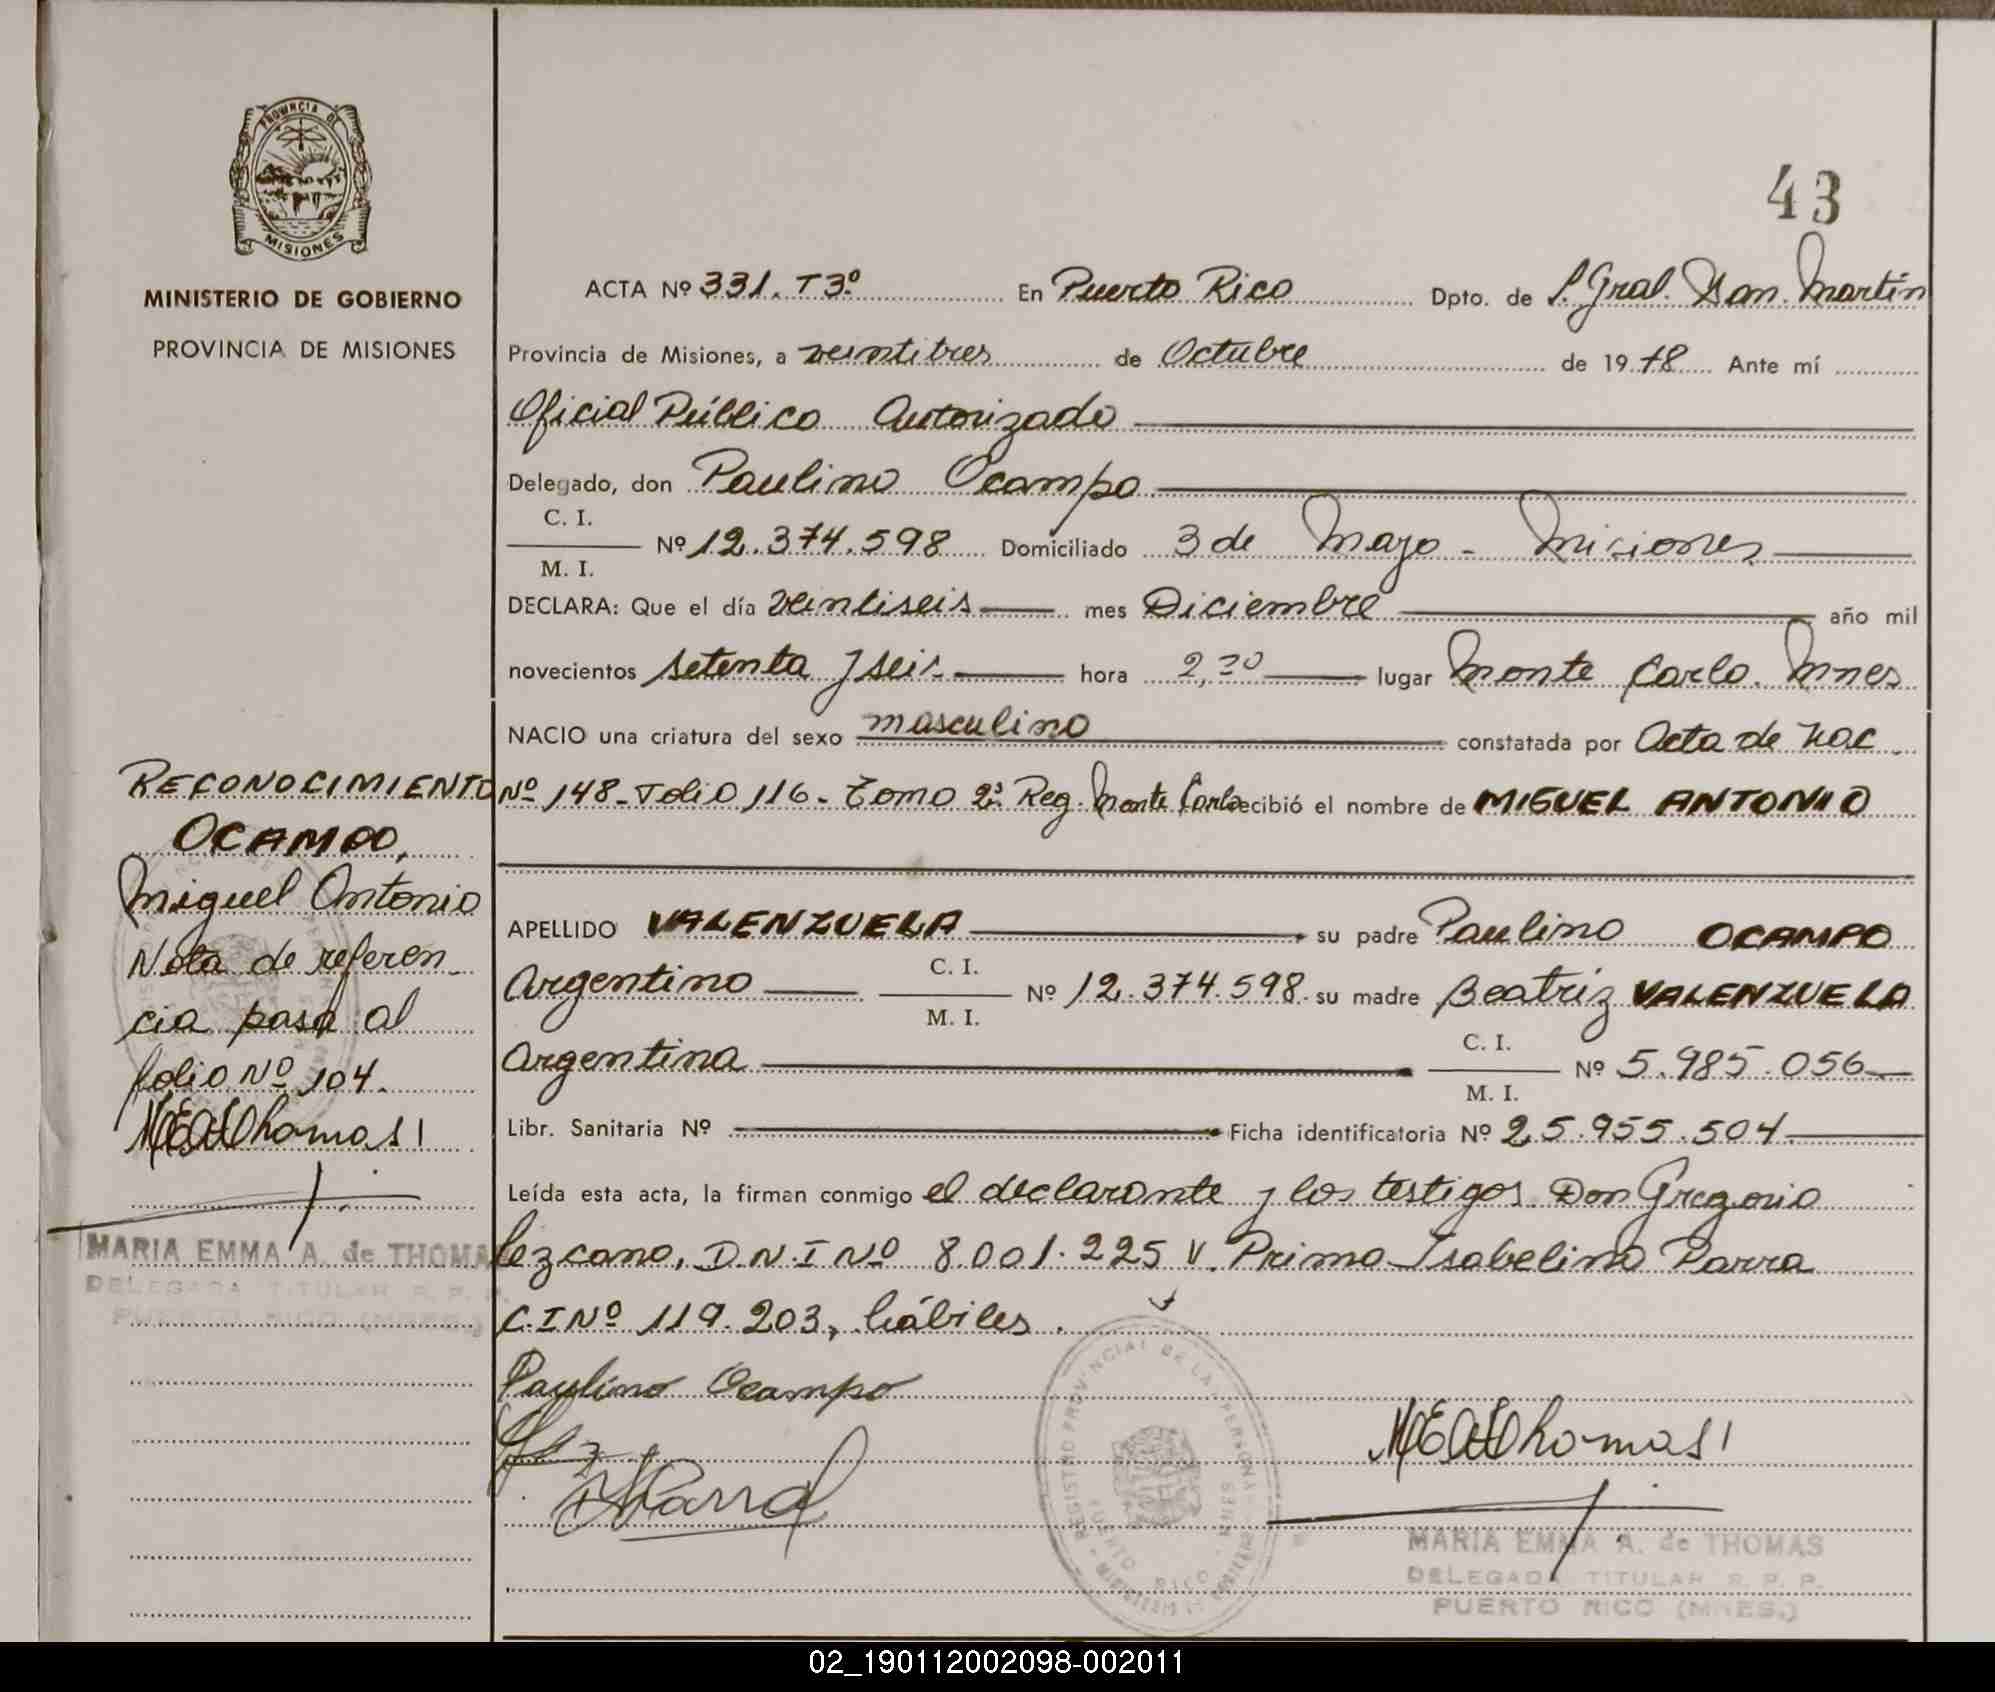 PROVINCIA DE
MISIONES
MINISTERIO DE GOBIERNO
PROVINCIA DE MISIONES
43
ACTA Nº 331. T3º En Puerto Rico Dpto. de L. Gral. San Martín
Provincia de Misiones, a veintitres de Octubre de 1978 Ante mí
Oficial Público Autorizado
Delegado, don Paulino Ocampo
C. I.
Nº 12.374.598 Domiciliado 3 de Mayo - Misiones
M. I.
DECLARA: Que el día veintiseis mes Diciembre año mil
novecientos setenta y seis hora 2,30 lugar Monte Carlo. Mnes
NACIO una criatura del sexo masculino constatada por Acta de Nac.
Nº 148-Folio 116- Tomo 2º Reg. Monte Carlo recibió el nombre de MIGUEL ANTONIO
APELLIDO VALENZUELA su padre Paulino OCAMPO
Argentino C. I. Nº 12.374.598 su madre Beatriz VALENZUELA
M. I.
Argentina C. I. Nº 5.985.056
M. I.
Libr. Sanitaria Nº Ficha identificatoria Nº 25.955.504
Leída esta acta, la firman conmigo el declarante y los testigos Don Gregorio
Lezcano, D.N.I Nº 8.001.225 y Primo Isabelino Parra
C.I Nº 119.203, hábiles.
Paulino Ocampo
Parra
MEAdeThomas
REGISTRO PROVINCIAL DE LAS PERSONAS
PUERTO RICO - MNES
MARIA EMMA A. de THOMAS
DELEGADA TITULAR R. P. P.
PUERTO RICO (MNES.)
RECONOCIMIENTO
OCAMPO,
Miguel Antonio
Nota de referen-
cia pasa al
folio Nº 104.
MEAdeThomas
MARIA EMMA A. de THOMA
DELEGADA TITULAR R. P. P.
PUERTO RICO (MNES.)
02_190112002098-002011